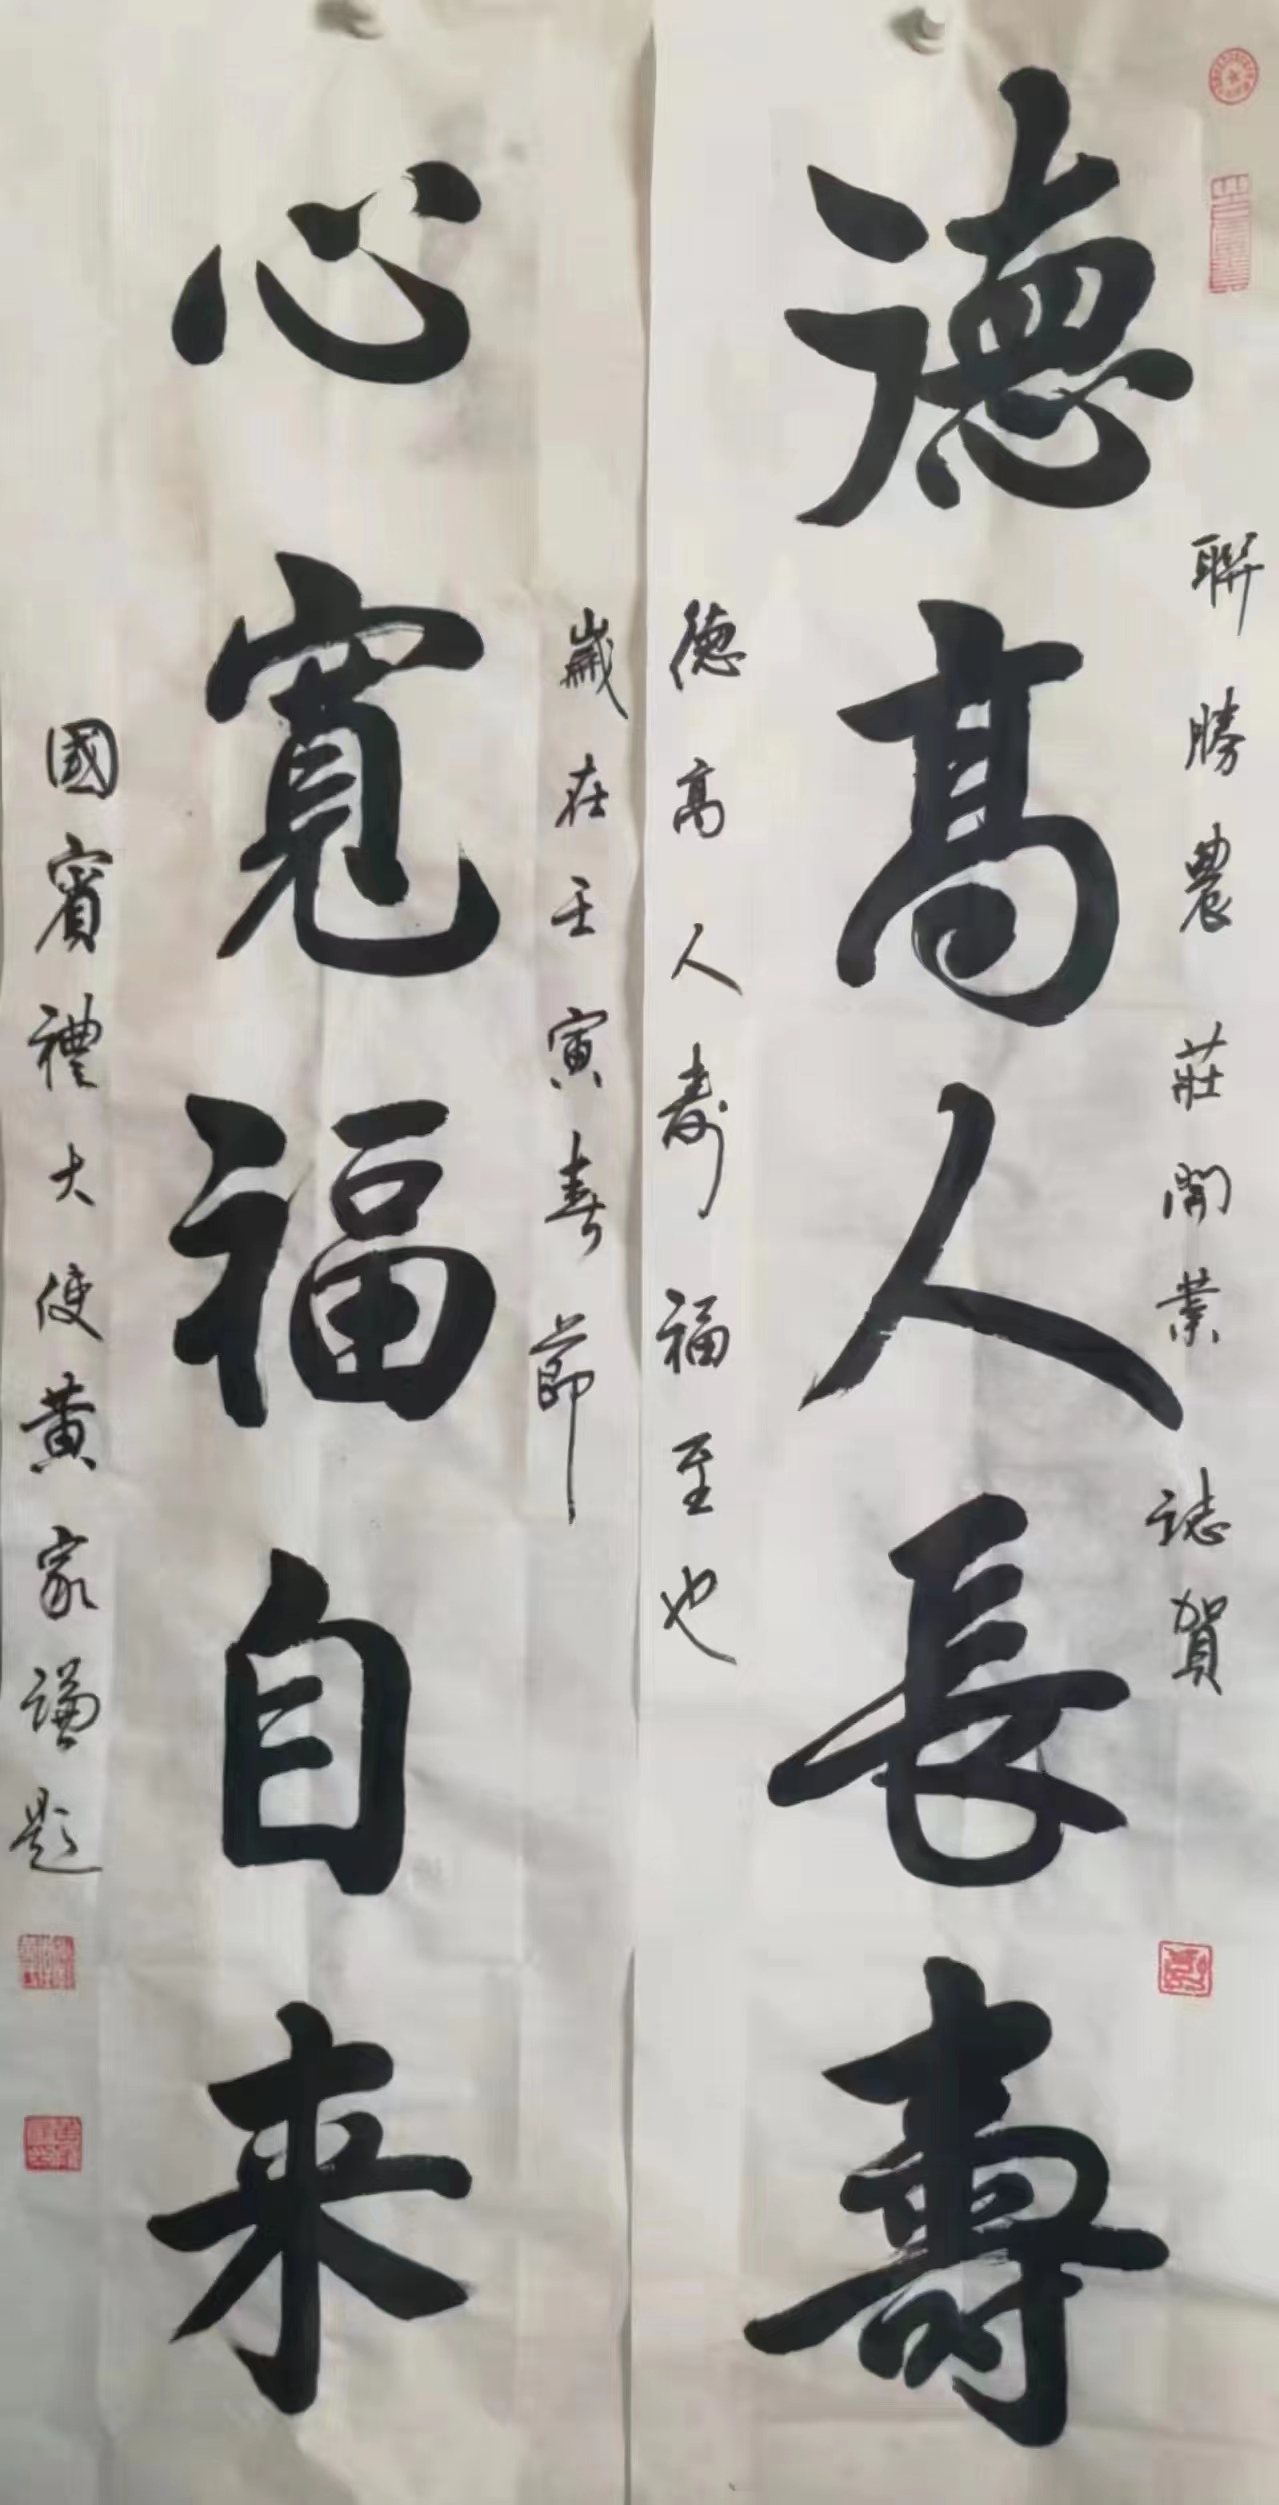 聯勝農莊開業誌賀
德高人長壽
德高人壽福至也
歲在壬寅春節
心寬福自来
國賓禮大使黃家謙題